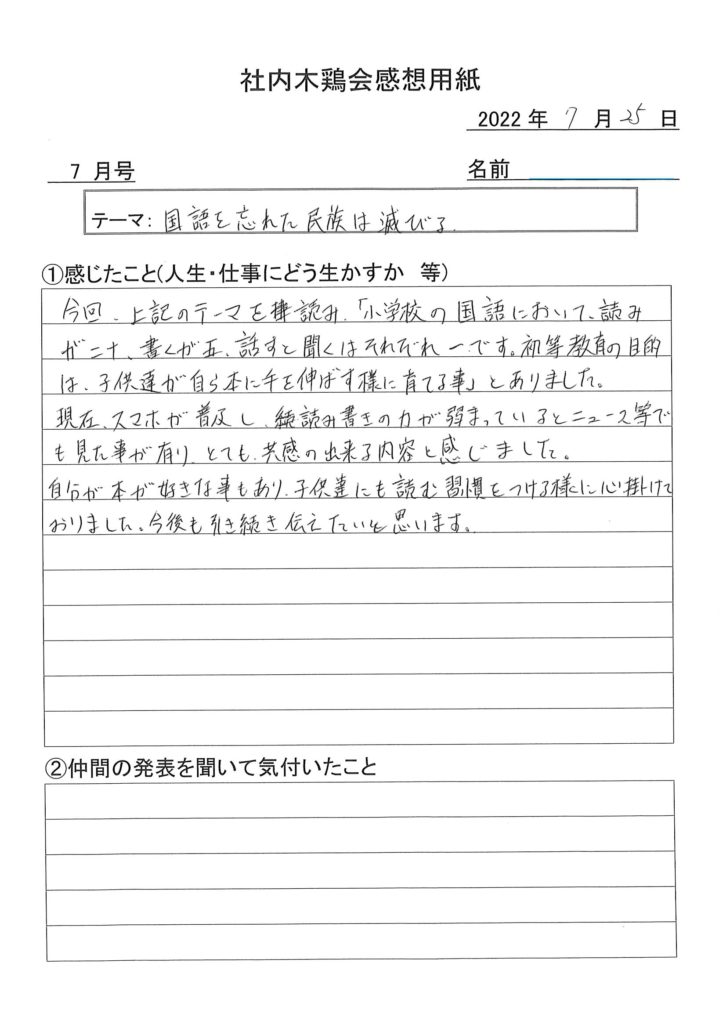 社内木鶏会感想用紙
2022 年 7 月 25 日
7 月号
名前
テーマ: 国語を忘れた民族は滅びる.
①感じたこと(人生・仕事にどう生かすか 等)
今回、上記のテーマを拝読み、「小学校の国語において、読み
が二十、書くが五、話すと聞くはそれぞれ一です。初等教育の目的
は、子供達が自ら本に手を伸ばす様に育てる事」とありました。
現在、スマホが普及し、読み書きの力が弱まっているとニュース等で
も見た事が有り、とても、共感の出来る内容と感じました。
自分が本が好きな事もあり、子供達にも読む習慣をつける様に心掛けて
おりました。今後も引き続き伝えたいと思います。
②仲間の発表を聞いて気付いたこと